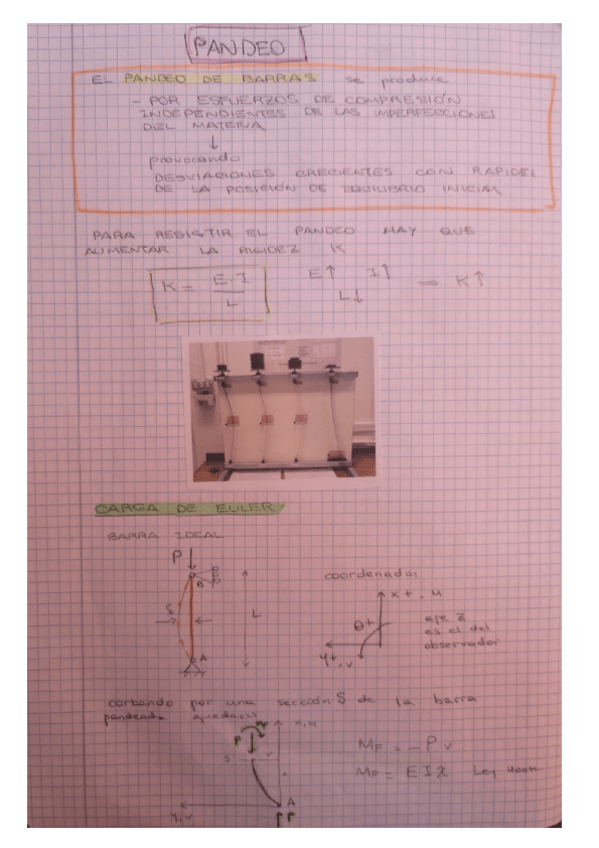 PANDEO
EL PANDEO DE BARRAS se produce
- POR ESFUERZOS DE COMPRESIÓN
INDEPENDIENTES DE LAS IMPERFECCIONES
DEL MATERIA
↓
provocando
DESVIACIONES CRECIENTES CON RAPIDEZ
DE LA POSICIÓN DE EQUILIBRIO INICIAL
PARA RESISTIR EL PANDEO HAY QUE
AUMENTAR LA RIGIDEZ K
K = E·I / L
E↑ I↑ ⇒ K↑
L↓
CARGA DE EULER
BARRA IDEAL
P
B
δ
L
A
coordenadas
x+, u
θ+
eje z
es el del
observador
y+, v
cortando por una sección S de la barra
pandeada quedaría
MF
x, u
P
S
v
A
y, v
P
MF = - P v
MF = E I χ Ley Hook